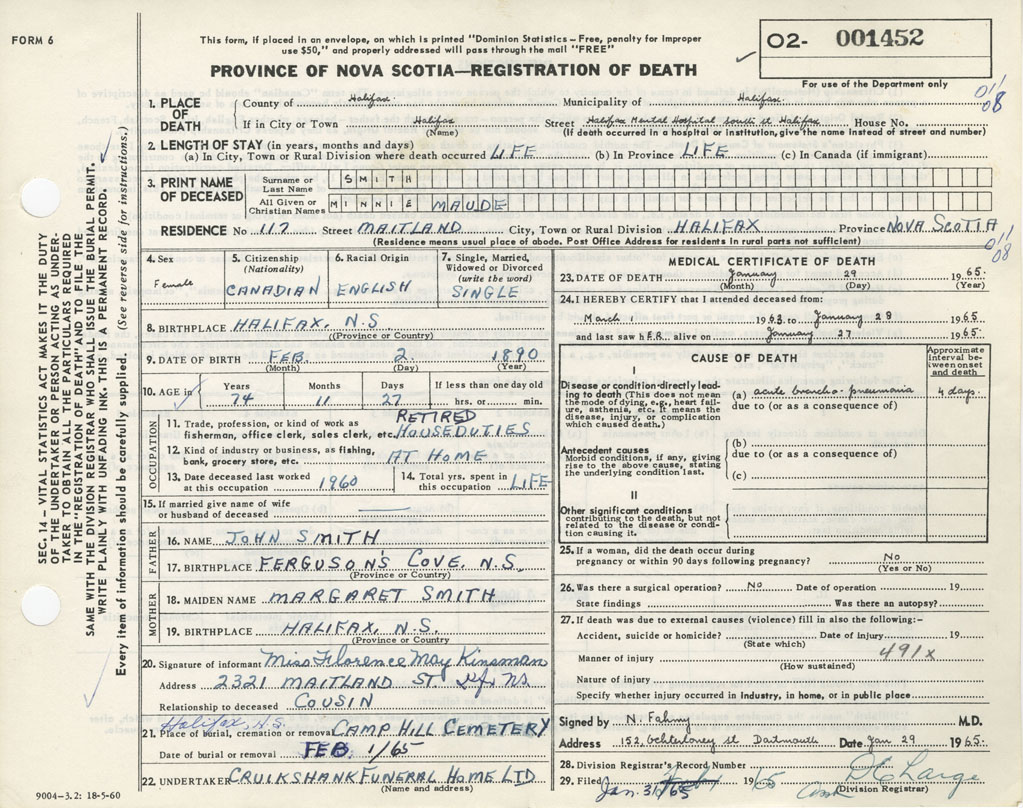 FORM 6
This form, if placed in an envelope, on which is printed "Dominion Statistics – Free, penalty for improper
use $50," and properly addressed will pass through the mail "FREE"
02- 001452
For use of the Department only
PROVINCE OF NOVA SCOTIA—REGISTRATION OF DEATH
01/08
1. PLACE OF DEATH
County of Halifax. Municipality of Halifax.
If in City or Town Halifax Street Halifax Mental Hospital South st Halifax House No.
(Name) (If death occurred in a hospital or institution, give the name instead of street and number)
2. LENGTH OF STAY (in years, months and days)
(a) In City, Town or Rural Division where death occurred LIFE (b) In Province LIFE (c) In Canada (if immigrant)
3. PRINT NAME OF DECEASED
Surname or Last Name SMITH
All Given or Christian Names MINNIE MAUDE
RESIDENCE No 117 Street MAITLAND City, Town or Rural Division HALIFAX Province NOVA SCOTIA
(Residence means usual place of abode. Post Office Address for residents in rural parts not sufficient)
01/08
4. Sex
Female
5. Citizenship
(Nationality)
CANADIAN
6. Racial Origin
ENGLISH
7. Single, Married, Widowed or Divorced
(write the word)
SINGLE
8. BIRTHPLACE HALIFAX, N.S.
(Province or Country)
9. DATE OF BIRTH FEB. 2. 1890
(Month) (Day) (Year)
10. AGE in Years 74 Months 11 Days 27 If less than one day old hrs. or min.
OCCUPATION
11. Trade, profession, or kind of work as RETIRED
fisherman, office clerk, sales clerk, etc. HOUSEDUTIES
12. Kind of industry or business, as fishing,
bank, grocery store, etc. AT HOME
13. Date deceased last worked at this occupation 1960
14. Total yrs. spent in this occupation LIFE
15. If married give name of wife
or husband of deceased
FATHER
16. NAME JOHN SMITH
17. BIRTHPLACE FERGUSON'S COVE, N.S.
(Province or Country)
MOTHER
18. MAIDEN NAME MARGARET SMITH
19. BIRTHPLACE HALIFAX, N.S.
(Province or Country)
20. Signature of informant Miss Florence May Kinsman
Address 2321 MAITLAND ST Hfx NS
Relationship to deceased COUSIN
Halifax, N.S.
21. Place of burial, cremation or removal CAMP HILL CEMETERY
Date of burial or removal FEB. 1/65
22. UNDERTAKER CRUIKSHANK FUNERAL HOME LTD
(Name and address)
9004-3.2: 18-5-60
MEDICAL CERTIFICATE OF DEATH
23. DATE OF DEATH January 29 1965.
(Month) (Day) (Year)
24. I HEREBY CERTIFY that I attended deceased from:
March 1963 to January 28 1965
and last saw hER alive on January 27 1965.
CAUSE OF DEATH
Approximate interval between onset and death
I
Disease or condition directly leading to death (This does not mean the mode of dying, e.g., heart failure, asthenia, etc. It means the disease, injury, or complication which caused death.)
(a) acute broncho-pneumonia 4 days.
due to (or as a consequence of)
Antecedent causes
Morbid conditions, if any, giving rise to the above cause, stating the underlying condition last.
(b)
due to (or as a consequence of)
(c)
II
Other significant conditions
contributing to the death, but not related to the disease or condition causing it.
25. If a woman, did the death occur during
pregnancy or within 90 days following pregnancy? No
(Yes or No)
26. Was there a surgical operation? No Date of operation 19
State findings Was there an autopsy?
27. If death was due to external causes (violence) fill in also the following:-
Accident, suicide or homicide? Date of injury 19
(State which)
Manner of injury 491x
(How sustained)
Nature of injury
Specify whether injury occurred in industry, in home, or in public place
Signed by N. Fahmy M.D.
Address 152, st Dartmouth Date Jan 29 1965.
28. Division Registrar's Record Number
29. Filed Jan. 31/65 1965 D C Large
(Division Registrar)
SEC. 14 – VITAL STATISTICS ACT MAKES IT THE DUTY
OF THE UNDERTAKER OR PERSON ACTING AS UNDER-
TAKER TO OBTAIN ALL THE PARTICULARS REQUIRED
IN THE "REGISTRATION OF DEATH" AND TO FILE THE
SAME WITH THE DIVISION REGISTRAR WHO SHALL ISSUE THE BURIAL PERMIT.
WRITE PLAINLY WITH UNFADING INK. THIS IS A PERMANENT RECORD.
Every item of information should be carefully supplied. (See reverse side for instructions.)